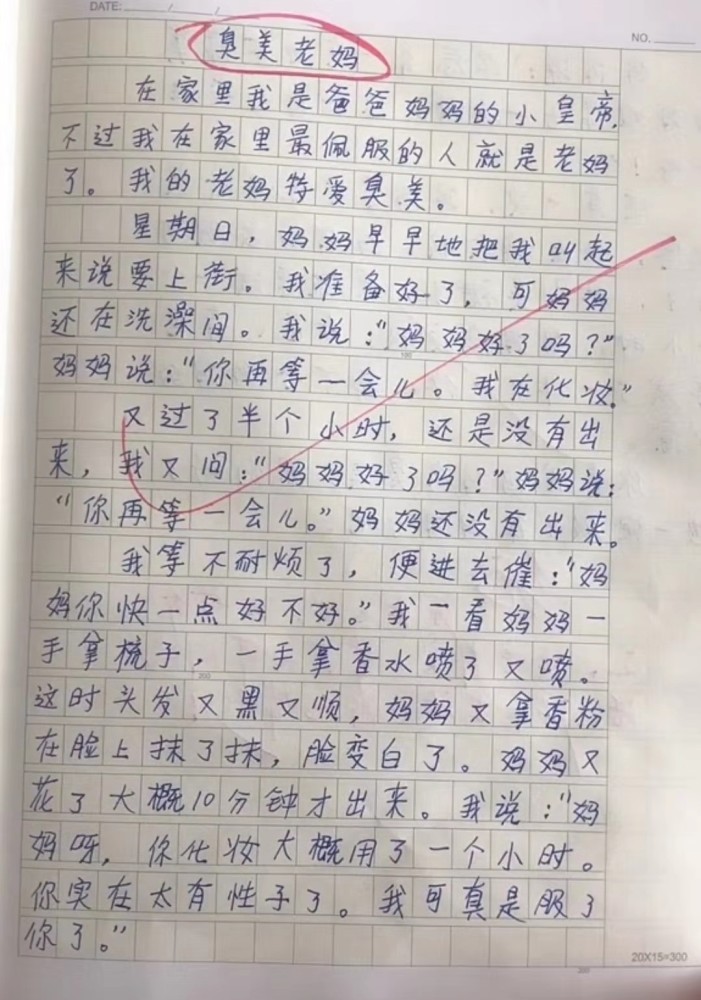 DATE: / /
NO.
臭美老妈
在家里我是爸爸妈妈的小皇帝,
不过我在家里最佩服的人就是老妈
了。我的老妈特爱臭美。
星期日,妈妈早早地把我叫起
来说要上街。我准备好了,可妈妈
还在洗澡间。我说:“妈妈好了吗?”
妈妈说:“你再等一会儿。我在化妆.”
又过了半个小时,还是没有出
来,我又问:“妈妈好了吗?”妈妈说:
“你再等一会儿。”妈妈还没有出来。
我等不耐烦了,便进去催:“妈
妈你快一点好不好。”我一看妈妈一
手拿梳子,一手拿香水喷了又喷。
这时头发又黑又顺,妈妈又拿香粉
在脸上抹了抹,脸变白了。妈妈又
花了大概10分钟才出来。我说:“妈
妈呀,你化妆大概用了一个小时。
你实在太有性子了。我可真是服了
你了。”
20X15=300